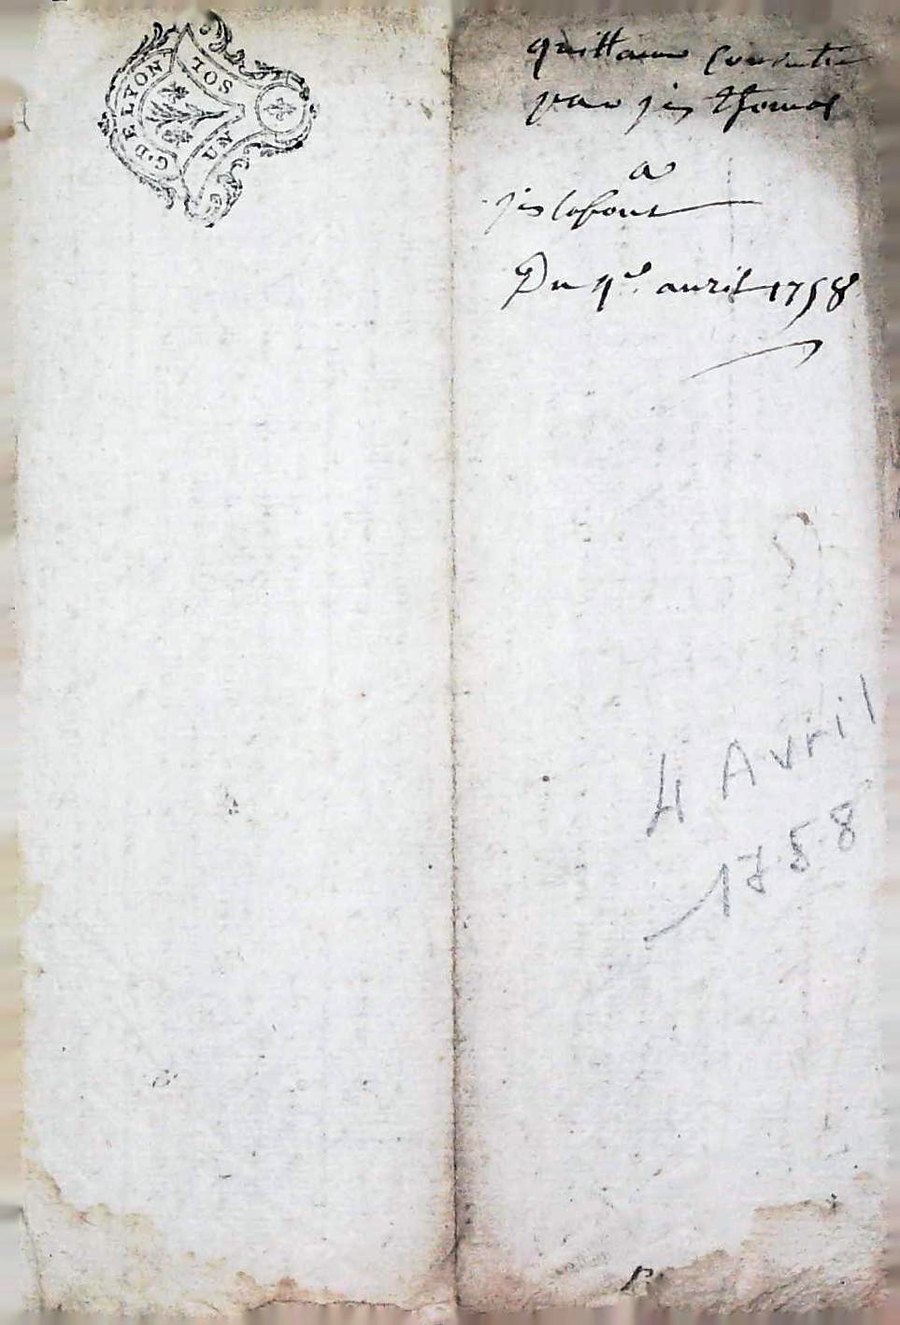 G · DE LYON
UN SOL
quittance
par jes thomas
a
jes lafont
Du 4e avril 1758
4 Avril
1758